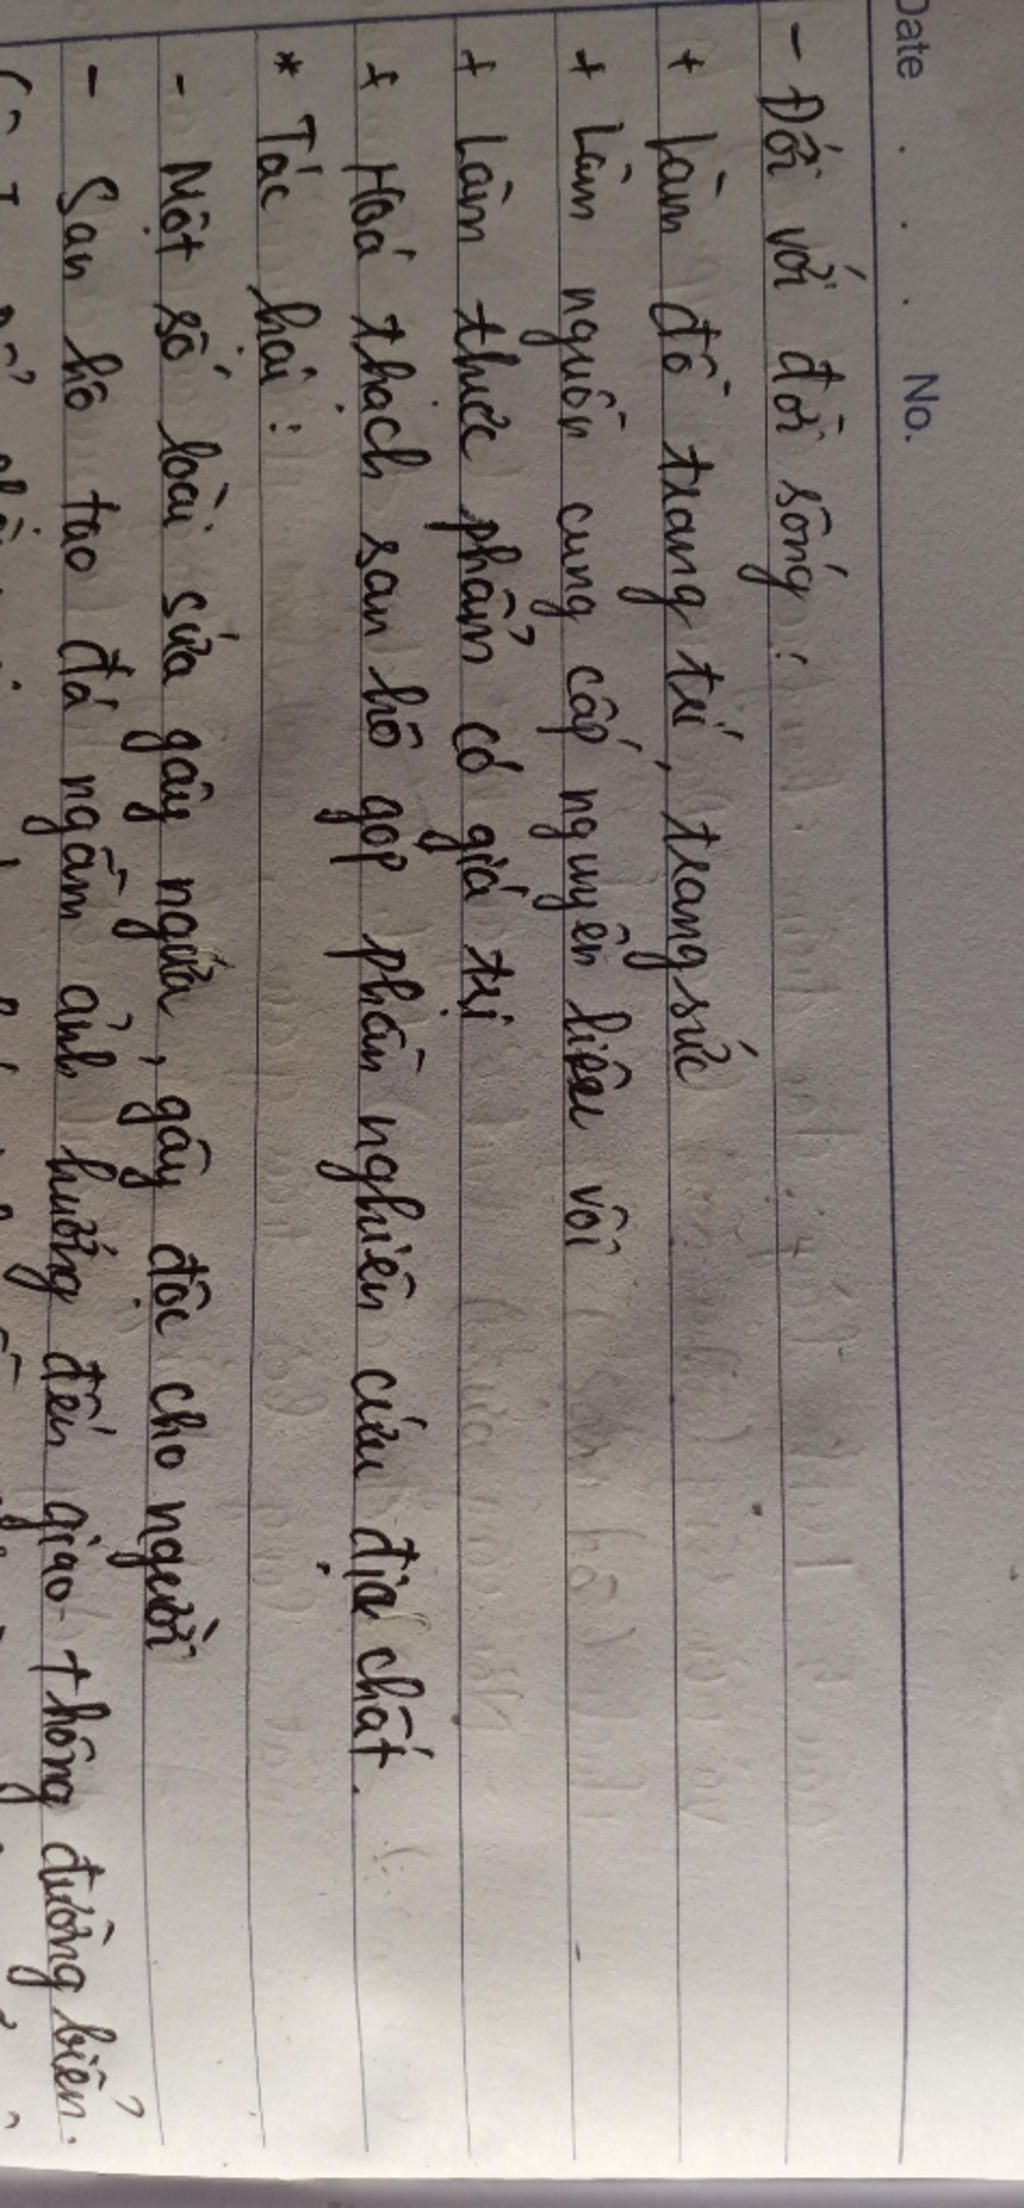 Date . . . No.
- Đối với đời sống:
+ Làm đồ trang trí, trang sức
+ Làm nguồn cung cấp nguyên liệu vôi
+ Làm thực phẩm có giá trị
+ Hoá thạch san hô góp phần nghiên cứu địa chất.
* Tác hại:
- Một số loài sứa gây ngứa, gây độc cho người
- San hô tạo đá ngầm ảnh hưởng đến giao thông đường biển.